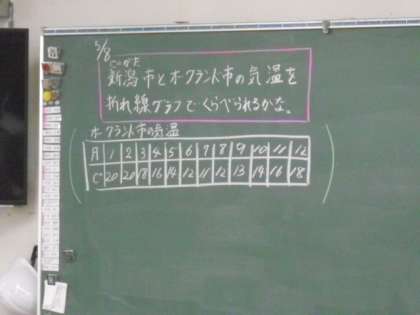 5/8
にいがた
新潟市とオークランド市の気温を
折れ線グラフでくらべられるかな。
オークランド市の気温
月 1 2 3 4 5 6 7 8 9 10 11 12
C° 20 20 18 16 14 12 11 12 13 14 16 18